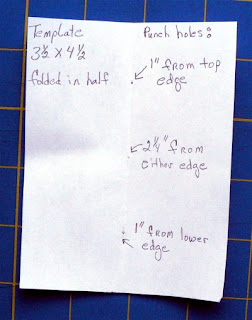 Template
3 1/2 X 4 1/2
folded in half
Punch holes:
1" from top
edge
2 1/4" from
either edge
1" from lower
edge